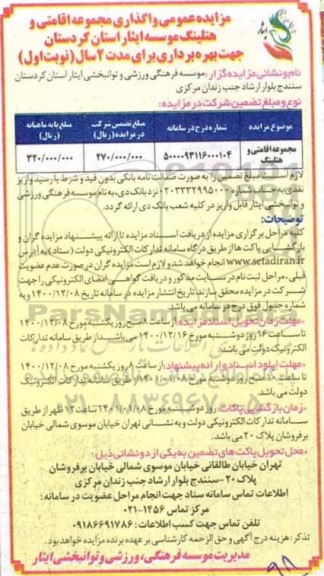 مزایده عمومی واگذاری مجموعه اقامتی و
هتلینگ موسسه ایثار استان کردستان
جهت بهره برداری برای مدت ۲ سال (نوبت اول)
نام و نشانی مزایده گزار: موسسه فرهنگی ورزشی و توانبخشی ایثار استان کردستان
سنندج بلوار ارشاد جنب زندان مرکزی
نوع و مبلغ تضمین شرکت در مزایده:
موضوع مزایده شماره درج در سامانه مبلغ تضمین شرکت در مزایده (ریال) مبلغ پایه ماهیانه (ریال)
مجموعه اقامتی و هتلینگ ۵۰۰۰۰۹۳۱۱۶۰۰۰۱۰۴ ۲۷۰/۰۰۰/۰۰۰ ۳۲۰/۰۰۰/۰۰۰
لازم است مبلغ تضمین را به صورت ضمانت نامه بانکی بدون قید و شرط یا رسید واریز
نقدی به حساب نزد بانک دی، به نام موسسه فرهنگی ورزشی
و توانبخشی ایثار قابل واریز در کلیه شعب بانک دی ارائه گردد.
توضیحات:
کلیه مراحل برگزاری مزایده از دریافت اسناد مزایده تا ارائه پیشنهاد مزایده گران و
بازگشایی پاکت ها از طریق درگاه سامانه تدارکات الکترونیکی دولت (ستاد) به آدرس
www.setadiran.ir انجام خواهد شد و لازم است مزایده گران در صورت عدم عضویت
قبلی، مراحل ثبت نام در سایت مذکور و دریافت گواهی امضای الکترونیکی را جهت
شرکت در مزایده محقق سازند تاریخ انتشار مزایده در سامانه تاریخ ۱۴۰۰/۱۲/۰۸ به
شماره جدول فوق درج در سامانه می باشد.
مهلت زمان تحویل اسناد مزایده: از ساعت ۸ صبح روز یکشنبه مورخ ۱۴۰۰/۱۲/۰۸
تا ساعت ۱۶ روز دوشنبه مورخ ۱۴۰۰/۱۲/۱۶ می باشد از طریق سامانه تدارکات
الکترونیک دولت می باشد
مهلت آپلود اسناد و ارائه پیشنهاد: از ساعت ۸ روز یکشنبه مورخ ۱۴۰۰/۱۲/۰۸
تا ساعت صبح روز دوشنبه مورخ از طریق سامانه تدارکات الکترونیک
دولت می باشد.
زمان بازگشایی پاکات: روز دوشنبه مورخ ۱۴۰۱/۰۱/۰۸ ساعت ۱۲ ظهر از طریق
سامانه تدارکات الکترونیکی دولت و به نشانی تهران خیابان موسوی شمالی خیابان
برفروشان پلاک ۲۰ می باشد.
محل تحویل پاکت های تضمین به یکی از دو نشانی ذیل:
تهران خیابان طالقانی خیابان موسوی شمالی خیابان برفروشان
پلاک ۲۰ - سنندج بلوار ارشاد جنب زندان مرکزی
اطلاعات تماس سامانه ستاد جهت انجام مراحل عضویت در سامانه:
مرکز تماس ۱۴۵۶-۰۲۱
تلفن تماس جهت کسب اطلاعات: ۰۹۱۸۶۶۹۱۷۸۶
تذکر: هزینه درج آگهی و حق الزحمه کارشناسی بر عهده برنده مزایده خواهد بود.
مدیریت موسسه فرهنگی، ورزشی و توانبخشی ایثار